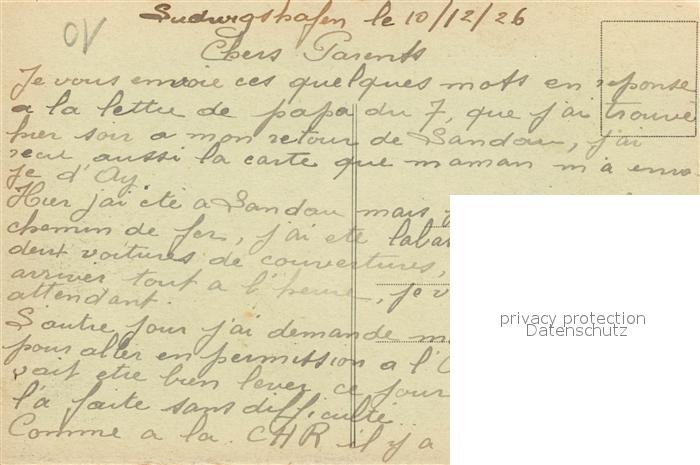 OV
Ludwigshafen le 10/12/26
Chers Parents
Je vous envoie ces quelques mots en reponse
a la lettre de papa du 7, que j'ai trouve
hier soir a mon retour de Landau, j'ai
recu aussi la carte que maman m'a envo-
ye d'Ay
Hier j'ai ete a Landau mais
chemin de fer, j'ai ete
deux voitures de couvertures,
arriver tout a l'heure, je v
attendant.
L'autre jour j'ai demande m
pour aller en permission a l'
vait etre bien lever ce jour
l'a faite sans difficulte.
Comme a la CHR il y a
privacy protection
Datenschutz